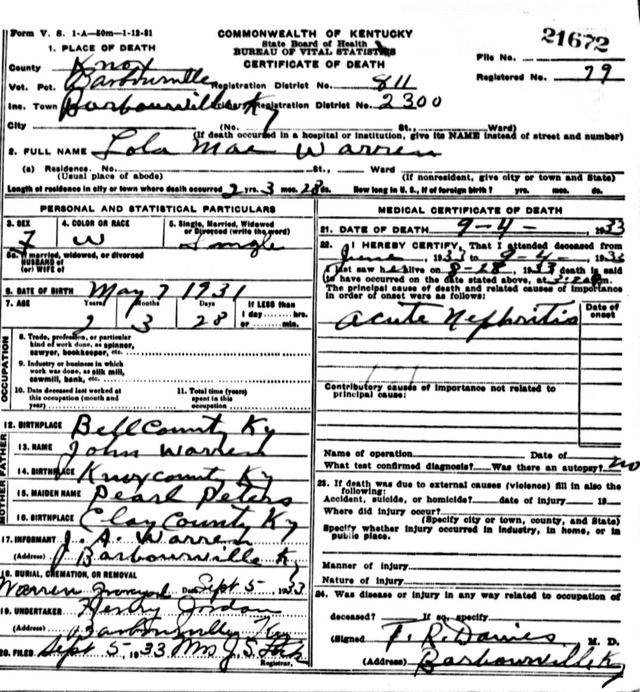 Form V. S. 1-A—50m—1-12-31
COMMONWEALTH OF KENTUCKY
State Board of Health
BUREAU OF VITAL STATISTICS
CERTIFICATE OF DEATH
21672
File No.
Registered No. 79
1. PLACE OF DEATH
County Knox
Vot. Pct. Barbourville Registration District No. 811
Inc. Town Barbourville Ky Registration District No. 2300
City (No. St., Ward)
(If death occurred in a hospital or institution, give its NAME instead of street and number)
2. FULL NAME Lola Mae Warren
(a) Residence. No. St., Ward
(Usual place of abode) (If nonresident, give city or town and State)
Length of residence in city or town where death occurred 2 yrs. 3 mos. 28 ds. How long in U. S., if of foreign birth? yrs. mos. ds.
PERSONAL AND STATISTICAL PARTICULARS
3. SEX F
4. COLOR OR RACE W
5. Single, Married, Widowed or Divorced (write the word) Single
5a. If married, widowed, or divorced
HUSBAND of
(or) WIFE of
6. DATE OF BIRTH May 7 1931
7. AGE Years 2 Months 3 Days 28 If LESS than 1 day hrs. or min.
OCCUPATION
8. Trade, profession, or particular kind of work done, as spinner, sawyer, bookkeeper, etc.
9. Industry or business in which work was done, as silk mill, sawmill, bank, etc.
10. Date deceased last worked at this occupation (month and year)
11. Total time (years) spent in this occupation
12. BIRTHPLACE Bell County Ky
FATHER
13. NAME John Warren
14. BIRTHPLACE Knox county Ky
MOTHER
15. MAIDEN NAME Pearl Peters
16. BIRTHPLACE Clay County Ky
17. INFORMANT J. A. Warren
(Address) Barbourville Ky
18. BURIAL, CREMATION, OR REMOVAL
Warren Graveyard Date Sept 5, 1933
19. UNDERTAKER Henry Jordan
(Address) Barbourville Ky
20. FILED Sept 5, 1933 Mrs J. S.
Registrar.
MEDICAL CERTIFICATE OF DEATH
21. DATE OF DEATH 9-4-, 1933
22. I HEREBY CERTIFY, That I attended deceased from
June, 1933 to 9-4-, 1933
I last saw her alive on 8-28, 1933 death is said
to have occurred on the date stated above, at m.
The principal cause of death and related causes of importance
in order of onset were as follows:
Date of onset
Acute Nephritis
Contributory causes of importance not related to
principal cause:
Name of operation Date of
What test confirmed diagnosis? Was there an autopsy? no
23. If death was due to external causes (violence) fill in also the
following:
Accident, suicide, or homicide? date of injury 19
Where did injury occur?
(Specify city or town, county, and State)
Specify whether injury occurred in industry, in home, or in
public place.
Manner of injury
Nature of injury
24. Was disease or injury in any way related to occupation of
deceased? If so, specify
(Signed T. R. Davies M. D.
(Address) Barbourville Ky